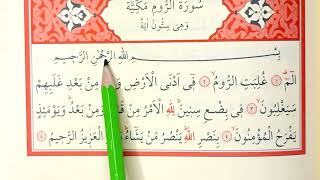 سُورَةُ الرُّومِ مَكِّيَّةٌ
وَهِيَ سِتُّونَ اٰيَةً
بِسْمِ اللّٰهِ الرَّحْمٰنِ الرَّحِيمِ
الٓمٓ ﴿١﴾ غُلِبَتِ الرُّومُ ﴿٢﴾ فِى اَدْنَى الْاَرْضِ وَهُمْ مِنْ بَعْدِ غَلَبِهِمْ
سَيَغْلِبُونَ ﴿٣﴾ فِى بِضْعِ سِنِينَ لِلّٰهِ الْاَمْرُ مِنْ قَبْلُ وَمِنْ بَعْدُ وَيَوْمَئِذٍ
يَفْرَحُ الْمُؤْمِنُونَ ﴿٤﴾ بِنَصْرِ اللّٰهِ يَنْصُرُ مَنْ يَشَاءُ وَهُوَ الْعَزِيزُ الرَّحِيمُ ﴿٥﴾